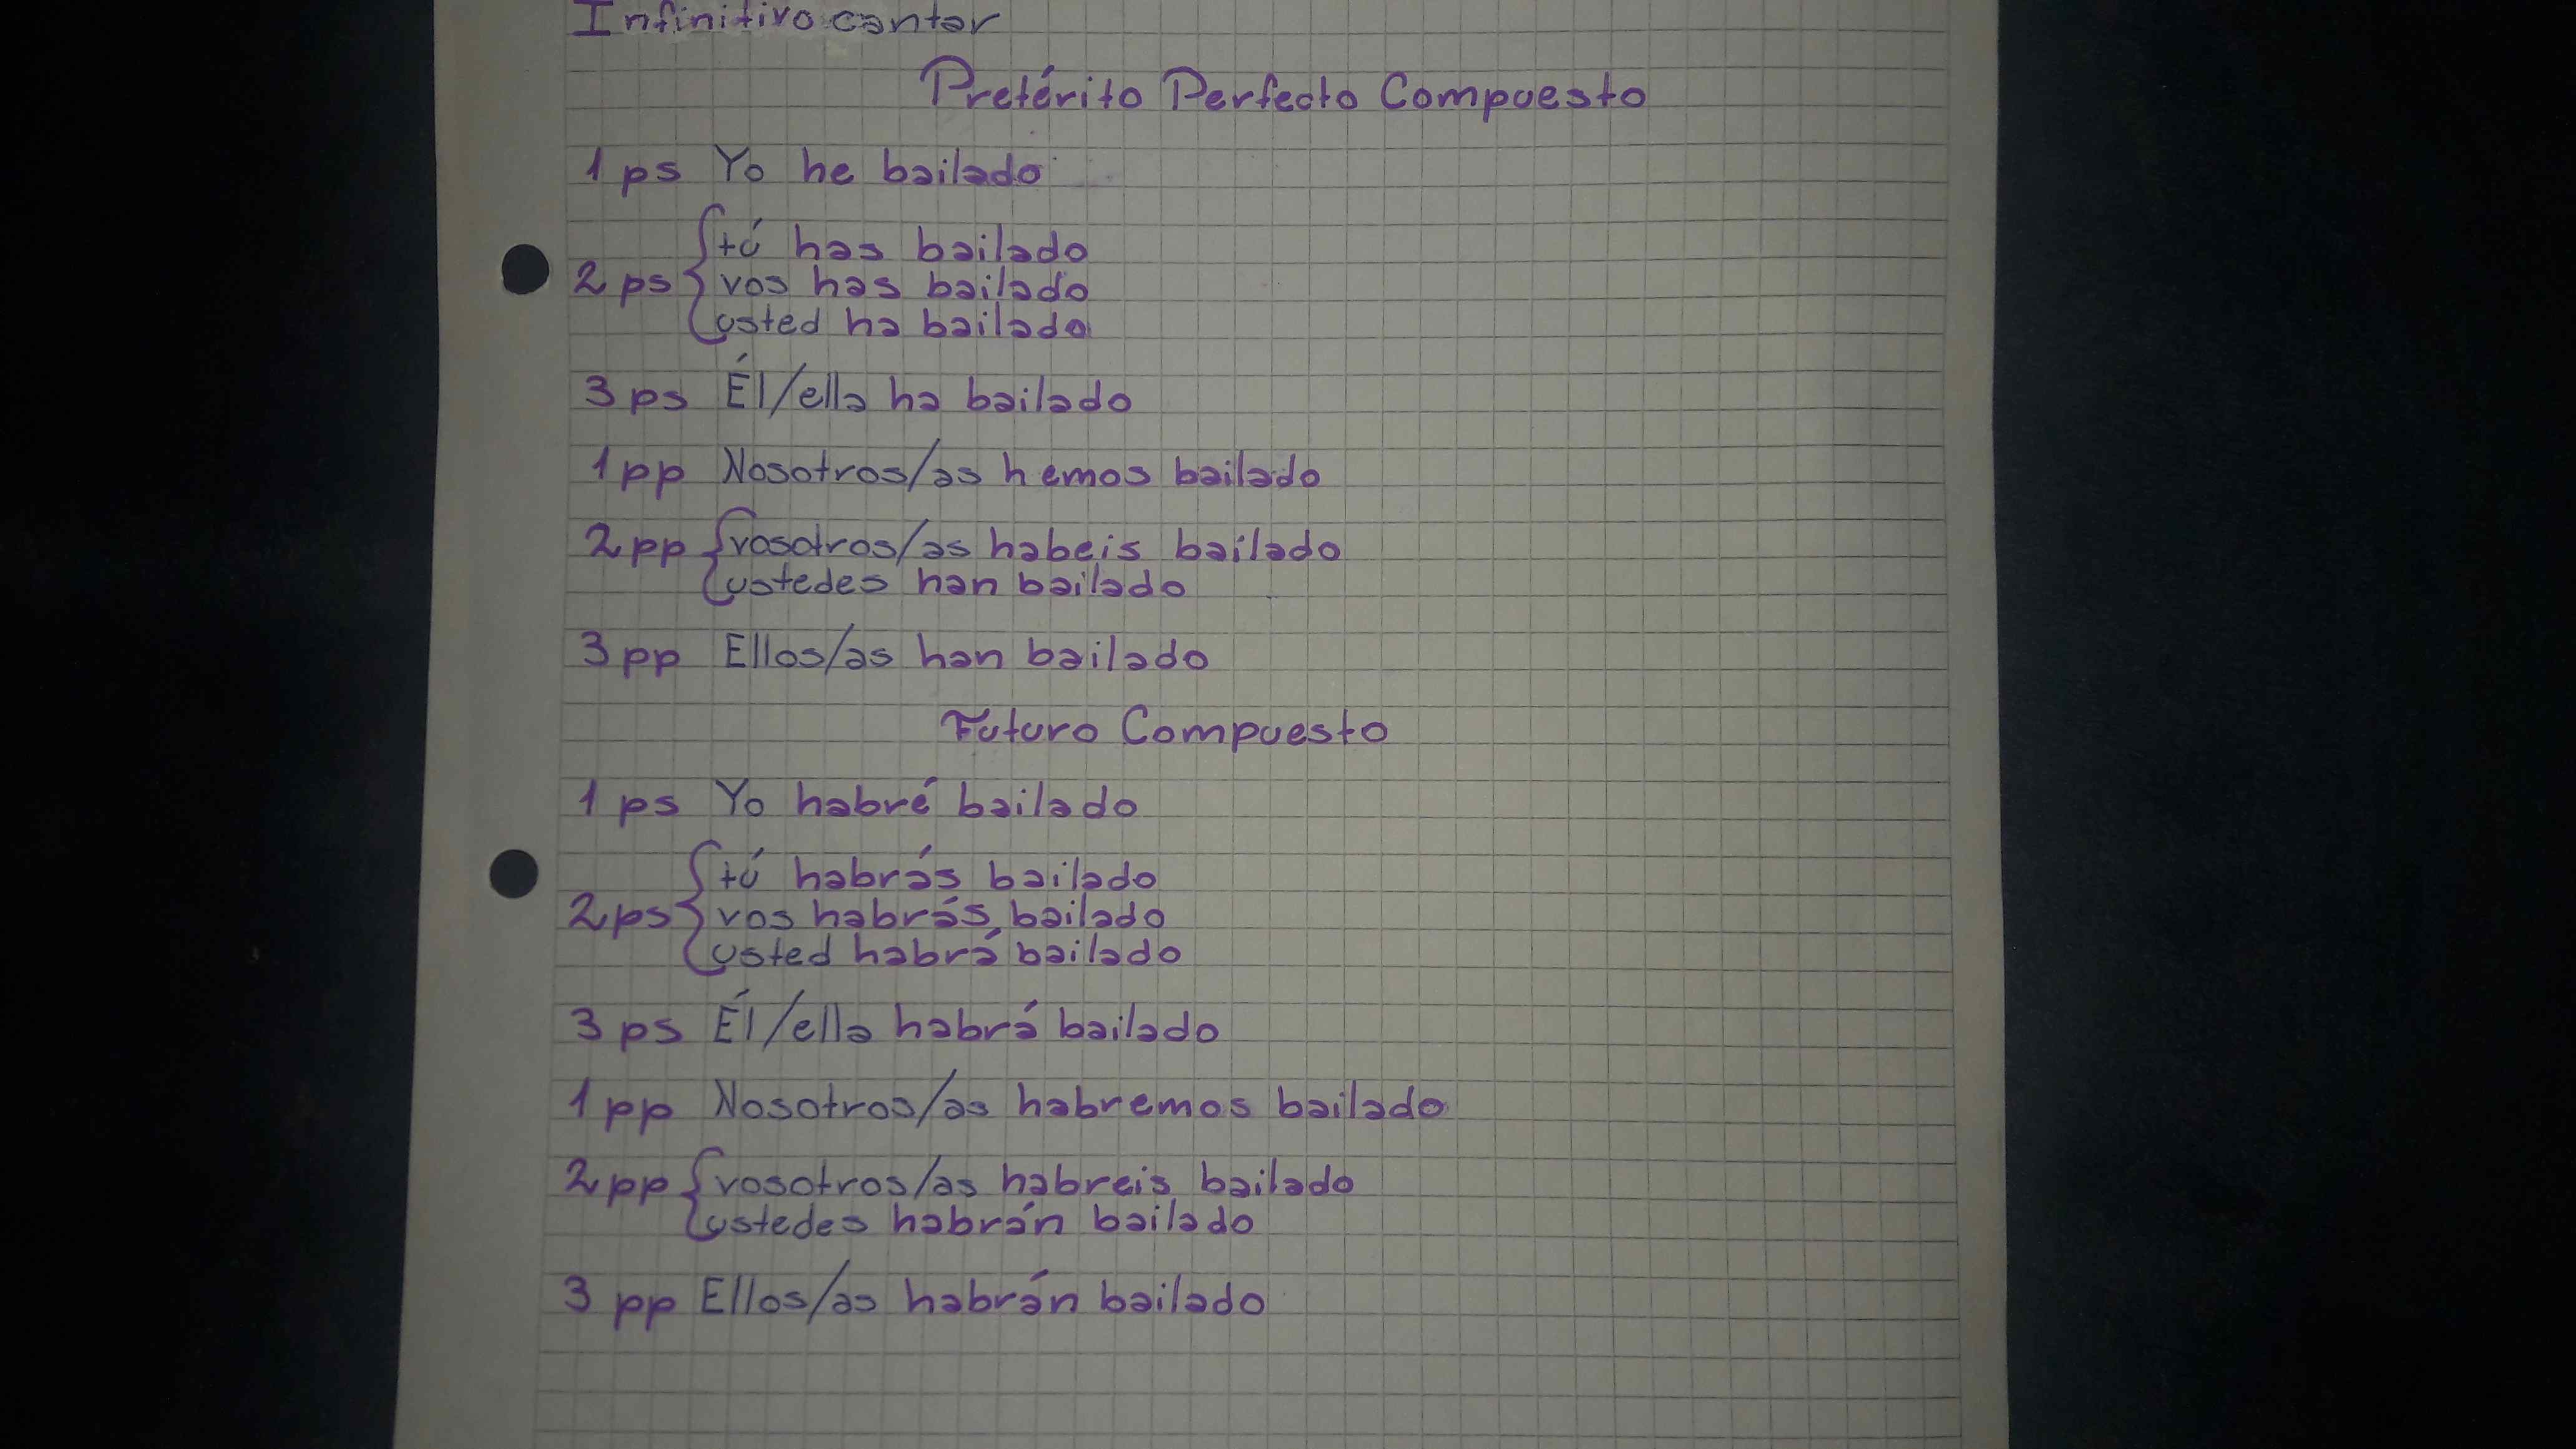 Infinitivo cantar
Pretérito Perfecto Compuesto
1 ps Yo he bailado
tú has bailado
2 ps vos has bailado
usted ha bailado
3 ps Él/ella ha bailado
1 pp Nosotros/as hemos bailado
2 pp vosotros/as habeis bailado
ustedes han bailado
3 pp Ellos/as han bailado
Futuro Compuesto
1 ps Yo habré bailado
tú habrás bailado
2 ps vos habrás bailado
usted habrá bailado
3 ps Él/ella habrá bailado
1 pp Nosotros/as habremos bailado
2 pp vosotros/as habreis bailado
ustedes habrán bailado
3 pp Ellos/as habrán bailado